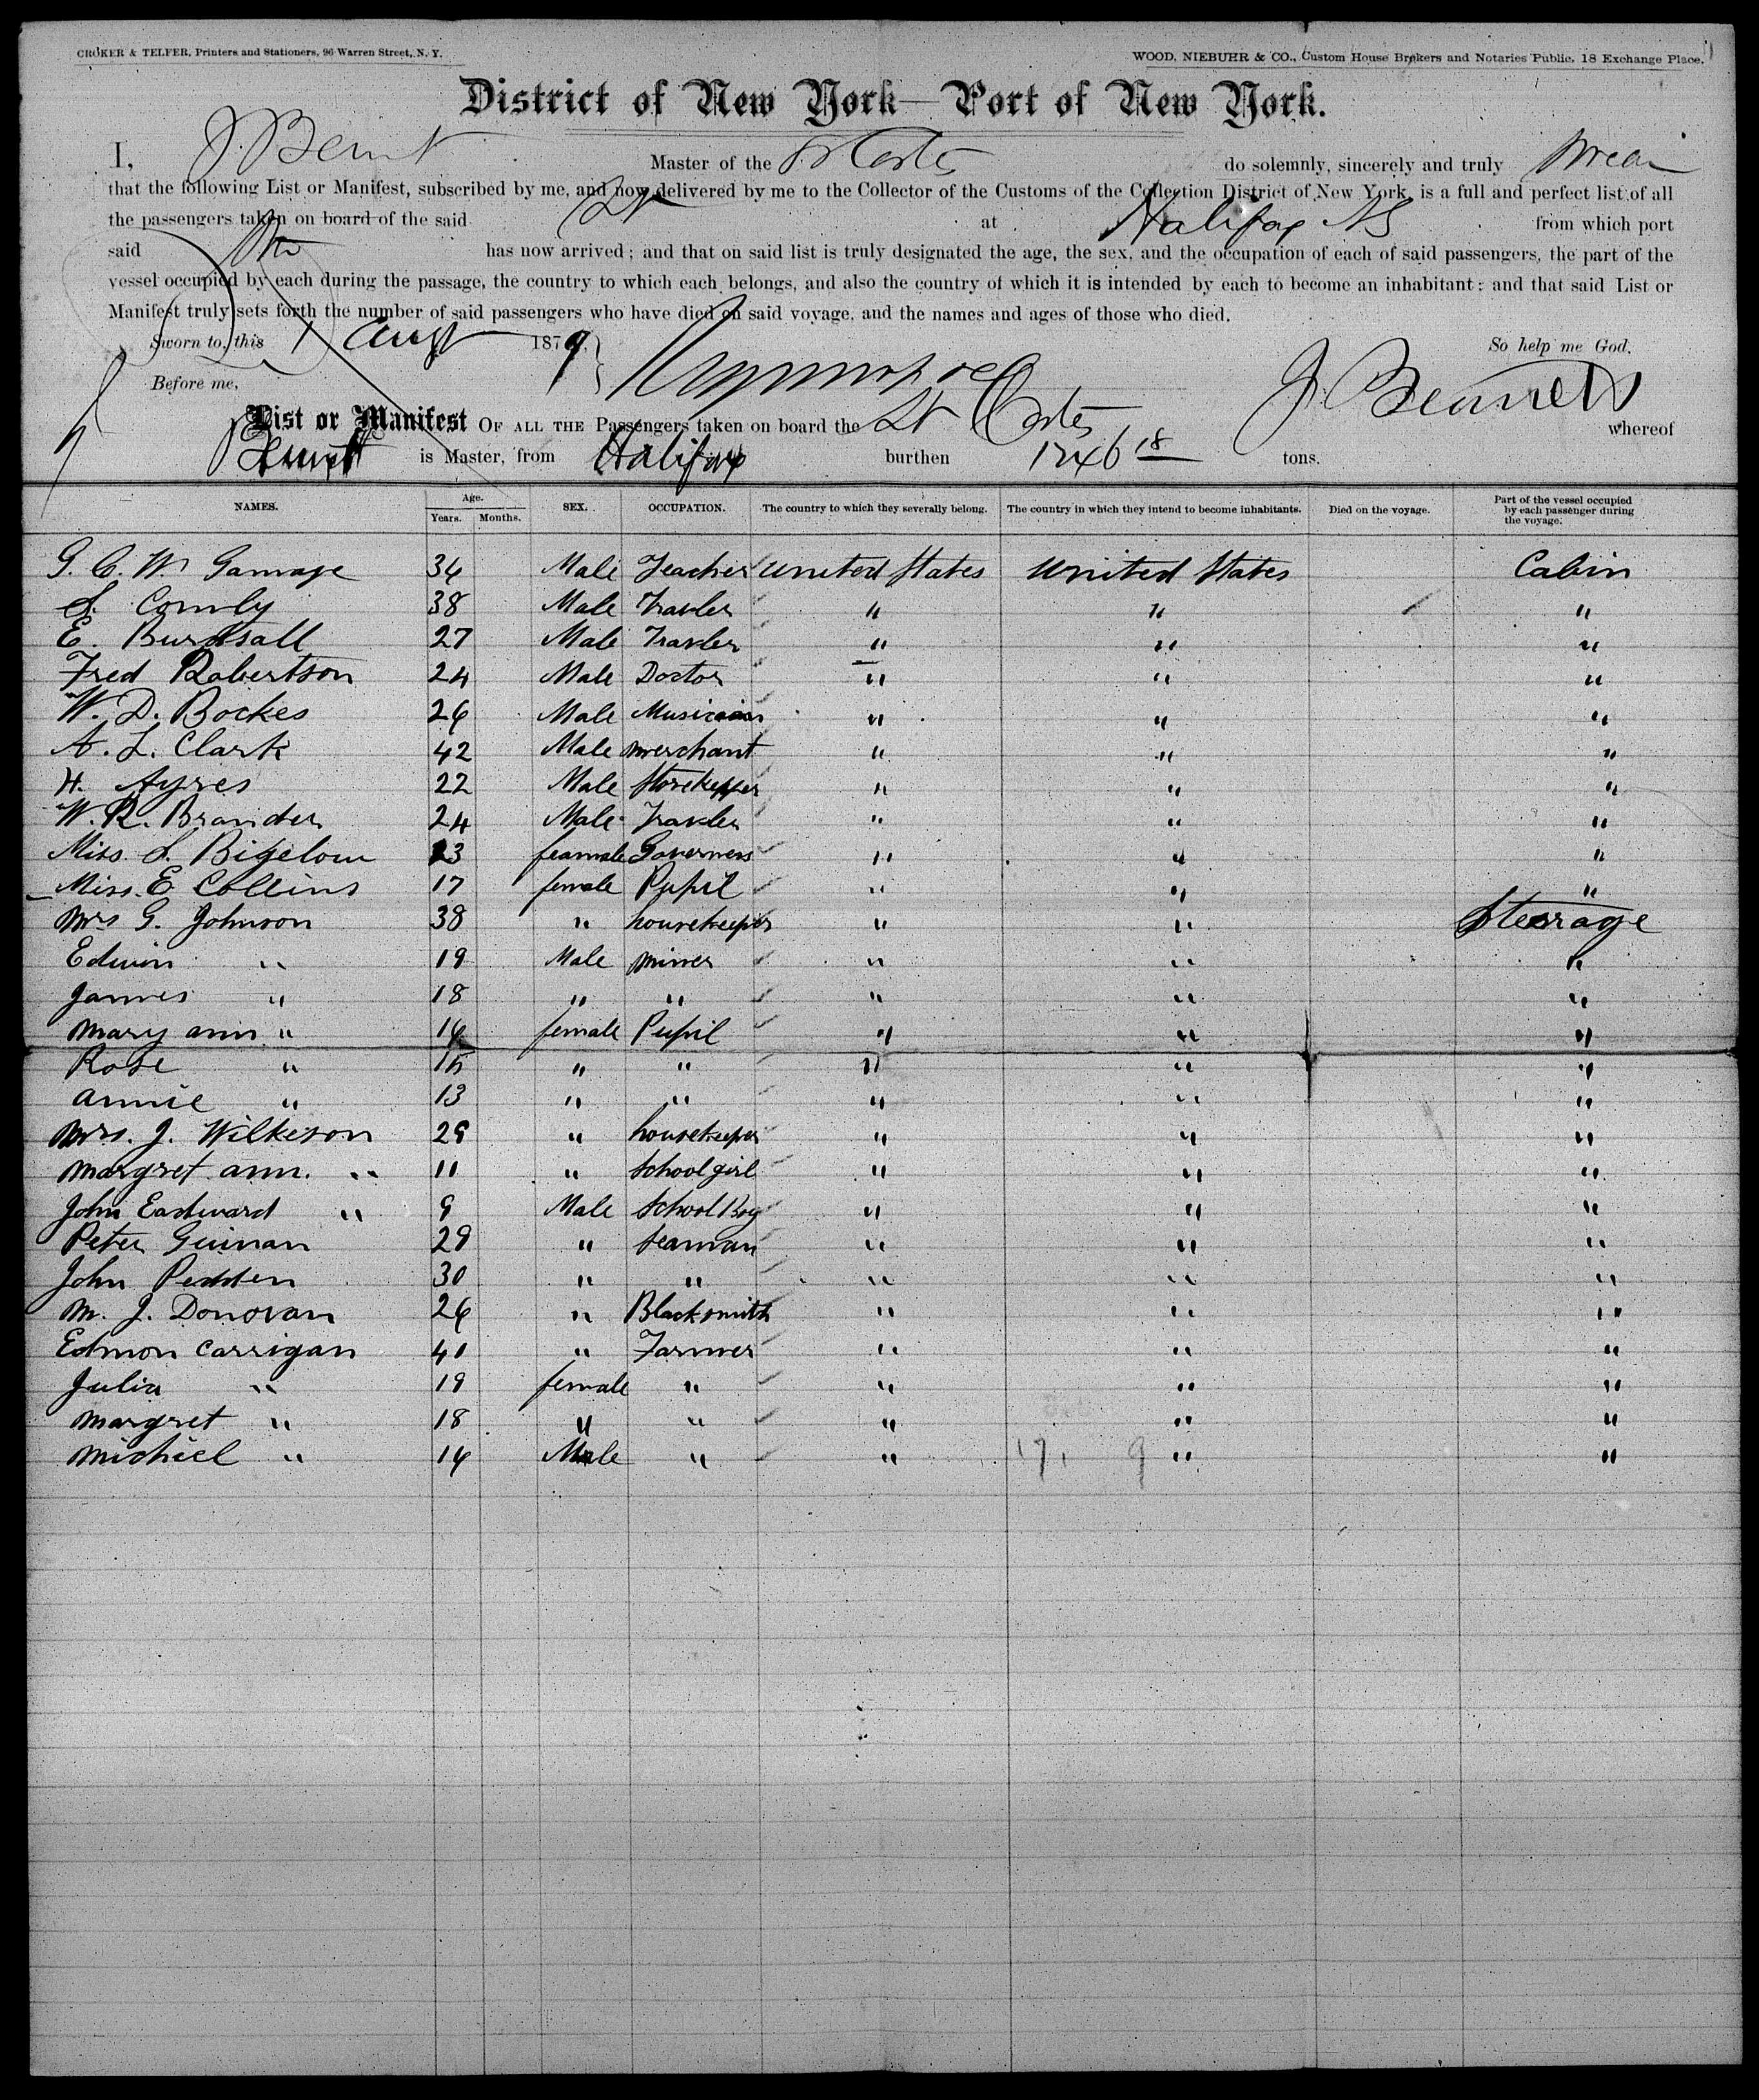 CROKER & TELFER, Printers and Stationers, 96 Warren Street, N. Y. WOOD, NIEBUHR & CO., Custom House Brokers and Notaries Public, 18 Exchange Place.
District of New York—Port of New York.
I, J. Bennett Master of the S Cortes do solemnly, sincerely and truly swear
that the following List or Manifest, subscribed by me, and now delivered by me to the Collector of the Customs of the Collection District of New York, is a full and perfect list of all
the passengers taken on board of the said Str at Halifax NS from which port
said Str has now arrived; and that on said list is truly designated the age, the sex, and the occupation of each of said passengers, the part of the
vessel occupied by each during the passage, the country to which each belongs, and also the country of which it is intended by each to become an inhabitant: and that said List or
Manifest truly sets forth the number of said passengers who have died on said voyage, and the names and ages of those who died.
Sworn to, this 1 Augt 1879, So help me God,
Before me, J. Bennett
List or Manifest OF ALL THE Passengers taken on board the St Cortes whereof
Bennett is Master, from Halifax burthen 1246 18 tons.
NAMES. Age. Years. Months. SEX. OCCUPATION. The country to which they severally belong. The country in which they intend to become inhabitants. Died on the voyage. Part of the vessel occupied by each passenger during the voyage.
G. C. W. Gamage 34 Male Teacher United States United States Cabin
S. Comly 38 Male Travler " " "
E. Burdsall 27 Male Travler " " "
Fred Robertson 24 Male Doctor " " "
W. D. Bockes 26 Male Musician " " "
A. L. Clark 42 Male merchant " " "
H. Ayres 22 Male Storekepper " " "
W. R. Brander 24 Male Travler " " "
Miss. S. Bigelow 23 feamale Governess " " "
Miss. E. Collins 17 female Pupil " " "
Mrs G. Johnson 38 " housekeeper " " Sterrage
Edwin " 19 Male miner " " "
James " 18 " " " " "
Mary ann " 16 female Pupil " " "
Rose " 15 " " " " "
annie " 13 " " " " "
Mrs. J. Wilkeson 29 " housekeeper " " "
Margret ann. " 11 " School girl " " "
John Eadward " 9 Male School Boy " " "
Peter Guinan 29 " Seaman " " "
John Pedden 30 " " " " "
M. J. Donovan 26 " Blacksmith " " "
Edmon Carrigan 41 " Farmer " " "
Julia " 19 female " " " "
Margret " 18 " " " " "
Michiel " 14 Male " " 17, 9 " "